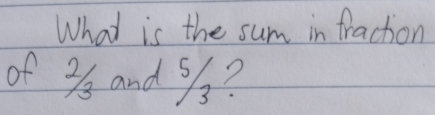 What is the sum in fraction
of 2/3 and 5/3?